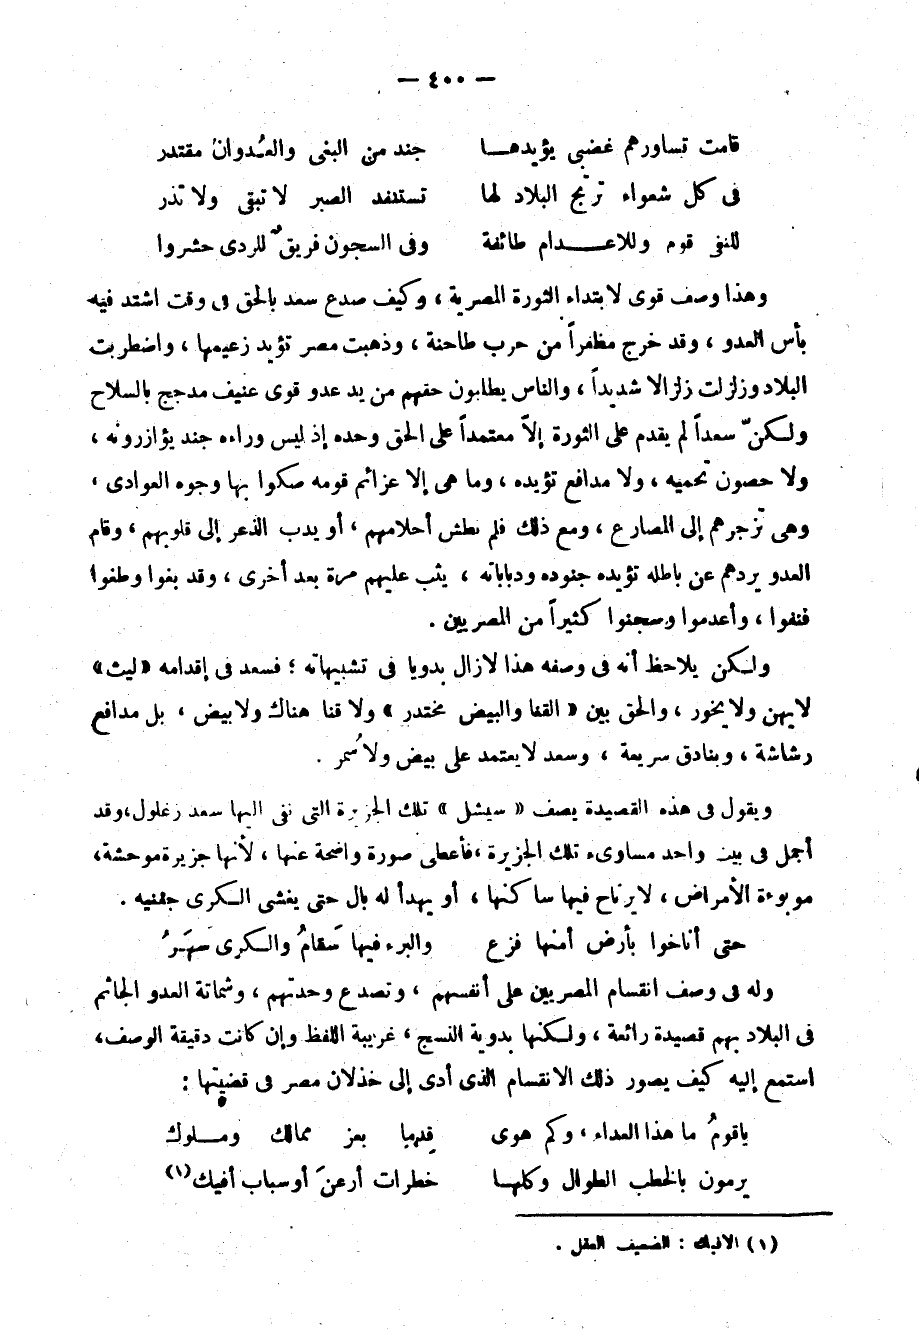 — ٤٠٠ —
قامت تساورهم غضبى يؤيدهــا جند من البغى والعُدوان مقتدر
فى كل شعواء ترتجّ البلاد لها تستنفد الصبر لا تبقى ولا تذر
للنفى قوم وللاعــدام طائفة وفى السجون فريقٌ للردى حشروا
وهذا وصف قوى لابتداء الثورة المصرية ، وكيف صدع سعد بالحق فى وقت اشتد فيه
بأس العدو ، وقد خرج مظفراً من حرب طاحنة ، وذهبت مصر تؤيد زعيمها ، واضطربت
البلاد وزلزلت زلزالا شديداً ، والناس يطالبون حقهم من يد عدو قوى عنيف مدجج بالسلاح
ولكنّ سعداً لم يقدم على الثورة إلاّ معتمداً على الحق وحده إذ ليس وراءه جند يؤازرونه ،
ولا حصون تحميه ، ولا مدافع تؤيده ، وما هى إلا عزائم قومه صكوا بها وجوه العوادى ،
وهى تزجرهم إلى المصارع ، ومع ذلك فلم تطش أحلامهم ، أو يدب الذعر إلى قلوبهم ، وقام
العدو يردهم عن باطله تؤيده جنوده ودباباته ، يثب عليهم مرة بعد أخرى ، وقد بغوا وطغوا
فنفوا ، وأعدموا وسجنوا كثيراً من المصريين .
ولكن يلاحظ أنه فى وصفه هذا لازال بدويا فى تشبيهاته ؛ فسعد فى إقدامه «ليث»
لايهن ولا يخور ، والحق بين « القنا والبيض مختدر » ولا قنا هناك ولا بيض ، بل مدافع
رشاشة ، وبنادق سريعة ، وسعد لا يعتمد على بيض ولا سُمر .
ويقول فى هذه القصيدة يصف « سيشل » تلك الجزيرة التى نفى اليها سعد زغلول ، وقد
أجمل فى بيت واحد مساوىء تلك الجزيرة ، فأعطى صورة واضحة عنها ، لأنها جزيرة موحشة ،
موبوءة الأمراض ، لا يرتاح فيها ساكنها ، أو يهدأ له بال حتى يغشى الكرى جفنيه .
حتى أناخوا بأرض أمنها فزع والبرء فيها سَقامُ والكرى سهَرُ
وله فى وصف انقسام المصريين على أنفسهم ، وتصدع وحدتهم ، وشماتة العدو الجاثم
فى البلاد بهم قصيدة رائعة ، ولكنها بدوية النسج ، غريبة اللفظ وإن كانت دقيقة الوصف ،
استمع إليه كيف يصور ذلك الانقسام الذى أدى إلى خذلان مصر فى قضيتها :
ياقومُ ما هذا العداء ، وكم هوى قديما بعز ممالك وملوك
يرمون بالخطب الطوال وكلها خطرات أرعنَ أو سباب أفيك (١)
(١) الافيك : الضعيف العقل .